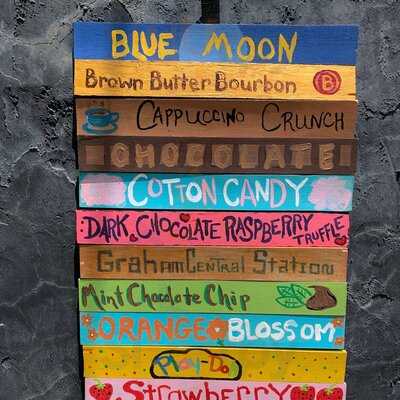 BLUE MOON
Brown Butter Bourbon B
CAPPUCCINO CRUNCH
CHOCOLATE
COTTON CANDY
DARK CHOCOLATE RASPBERRY TRUFFLE
Graham Central Station
Mint Chocolate Chip
ORANGE BLOSSOM
Play-Do
Strawberry